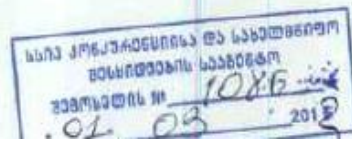 სსიპ კონკურენციისა და სახელმწიფო
შესყიდვების სააგენტო
შემოსვლის № 1086
. 01. 03 201